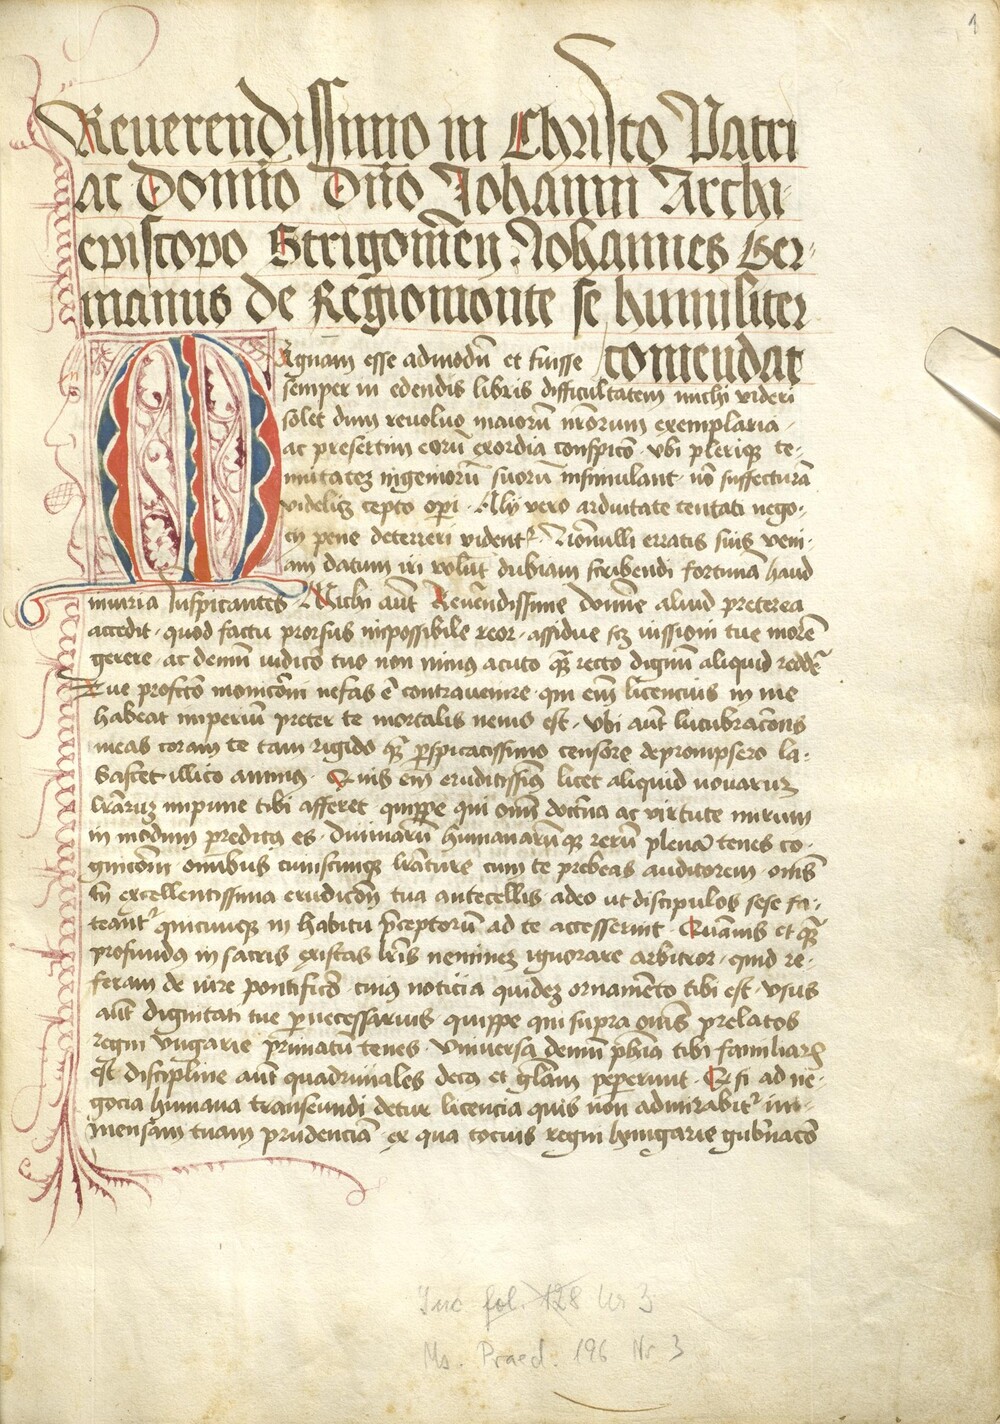 1
Reuerendissimo in Christo Patri
ac Domīo Dn̄o Iohanni Archi-
episcopo Strigonien̄ Iohannes Ger-
manus de Regiomonte se humiliter
comendat
Magnam esse admodū et fuisse
semper in edendis libris difficultatem michi videri
solet dum reuoluo maiorū nr̄orum exemplaria ·
ac presertim eorū exordia conspicō · vbi pleriqꝫ te-
nuitateꝫ ingeniorū suorū insimulant · nō suffecturā
videliꝫ cepto oꝑi · Alij vero arduitate tentati nego-
cij pene deterreri vident᷑ · Nōnulli erratis suis veni-
am datum iri volūt dubiam scribendi fortunā haud
iniuria suspicantes Michi aūt Reuerēdissime domīe aliud preterea
accedit · quod factu prorsus impossibile reor · assidue sꝫ iussioni tue morē
gerere · ac demū iudicō tuo non minꝰ acuto qꝫ̄ recto dignū aliquid reddē
Tue profecto monicōni nefas ē contrauenire · qui em̄ licencius in me
habeat imperiū preter te mortalis nemo est · Vbi aūt lucubracōnes
meas coram te tam rigido qꝫ̄ ꝑspicacissimo censore deprompsero la-
bascet illico animꝰ · Quis em̄ eruditissimꝰ licet aliquid nouarum
lr̄arum impune tibi afferet quippe qui omī doctrīa ac virtute mirum
in modum preditꝰ es · Diuinarū humanarūqꝫ rerū plenā tenes co-
gnicōm · omibus cuiuscunqꝫ lr̄ature cum te prebeas auditorem · om̄s
tn̄ excellentissima erudicōn tua antecellis adeo ut discipulos sese fa-
teant᷑ quicunqꝫ in habitu p̄ceptorū ad te accesserint · Quāuis et qꝫ̄
profundꝰ in sacris existas lr̄is nemineꝫ ignorare arbitror · quid re-
feram de iure pontificō · cuiꝰ noticia quideꝫ ornamēto tibi est · vsus
aūt dignitati tue ꝑnecessarius · quippe qui supra om̄s prelatos
regni vngarie primatū tenes · Vniuersa demū ph̄ia tibi familiaris
est discipline aūt quadriuiales decꝰ et gl̄am pepererunt · Et si ad ne-
gocia humana transeundi detur licencia quis non admirabit᷑ im-
mensam tuam prudenciā · ex qua tocius regni hungarie gub̄nacō
Inc fol. 128 Nr 3
Ms. Praed. 196 Nr. 3